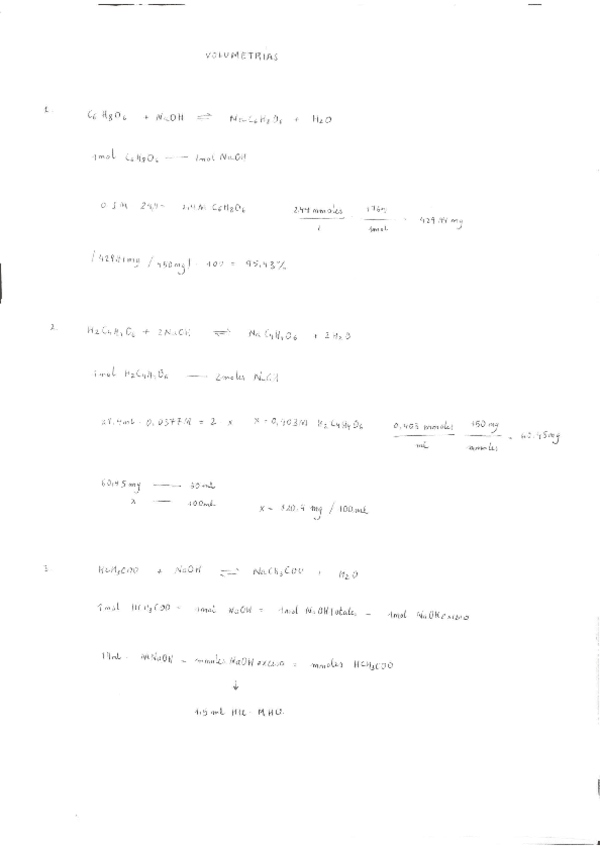 VOLUMETRIAS
1. C6H8O6 + NaOH ⇌ NaC6H7O6 + H2O
1mol C6H8O6 —— 1mol NaOH
0.1M 24,4 = C6H8O6 2,44 mmoles / 1 176g / 1mol = 429.44 mg
/ 450mg | 100 = 95,43%
2. H2C4H4O6 + 2NaOH ⇌ NaC4H4O6 + 2H2O
1mol H2C4H4O6 —— 2moles NaOH
21,4mL · 0,0377M = 2 x x = 0,403M H2C4H4O6 0,403 mmoles / mL 150 mg / mmoles = 60,45mg
60,45mg —— 50mL
x —— 100mL x = 120.9 mg / 100mL
3. HCH3COO + NaOH ⇌ NaCH3COO + H2O
1mol HCH3COO = 1mol NaOH = 1mol NaOH totales - 1mol NaOH exceso
NaOH - mmoles NaOH exceso = mmoles HCH3COO
↓
1,5 mL HCl · MHCl